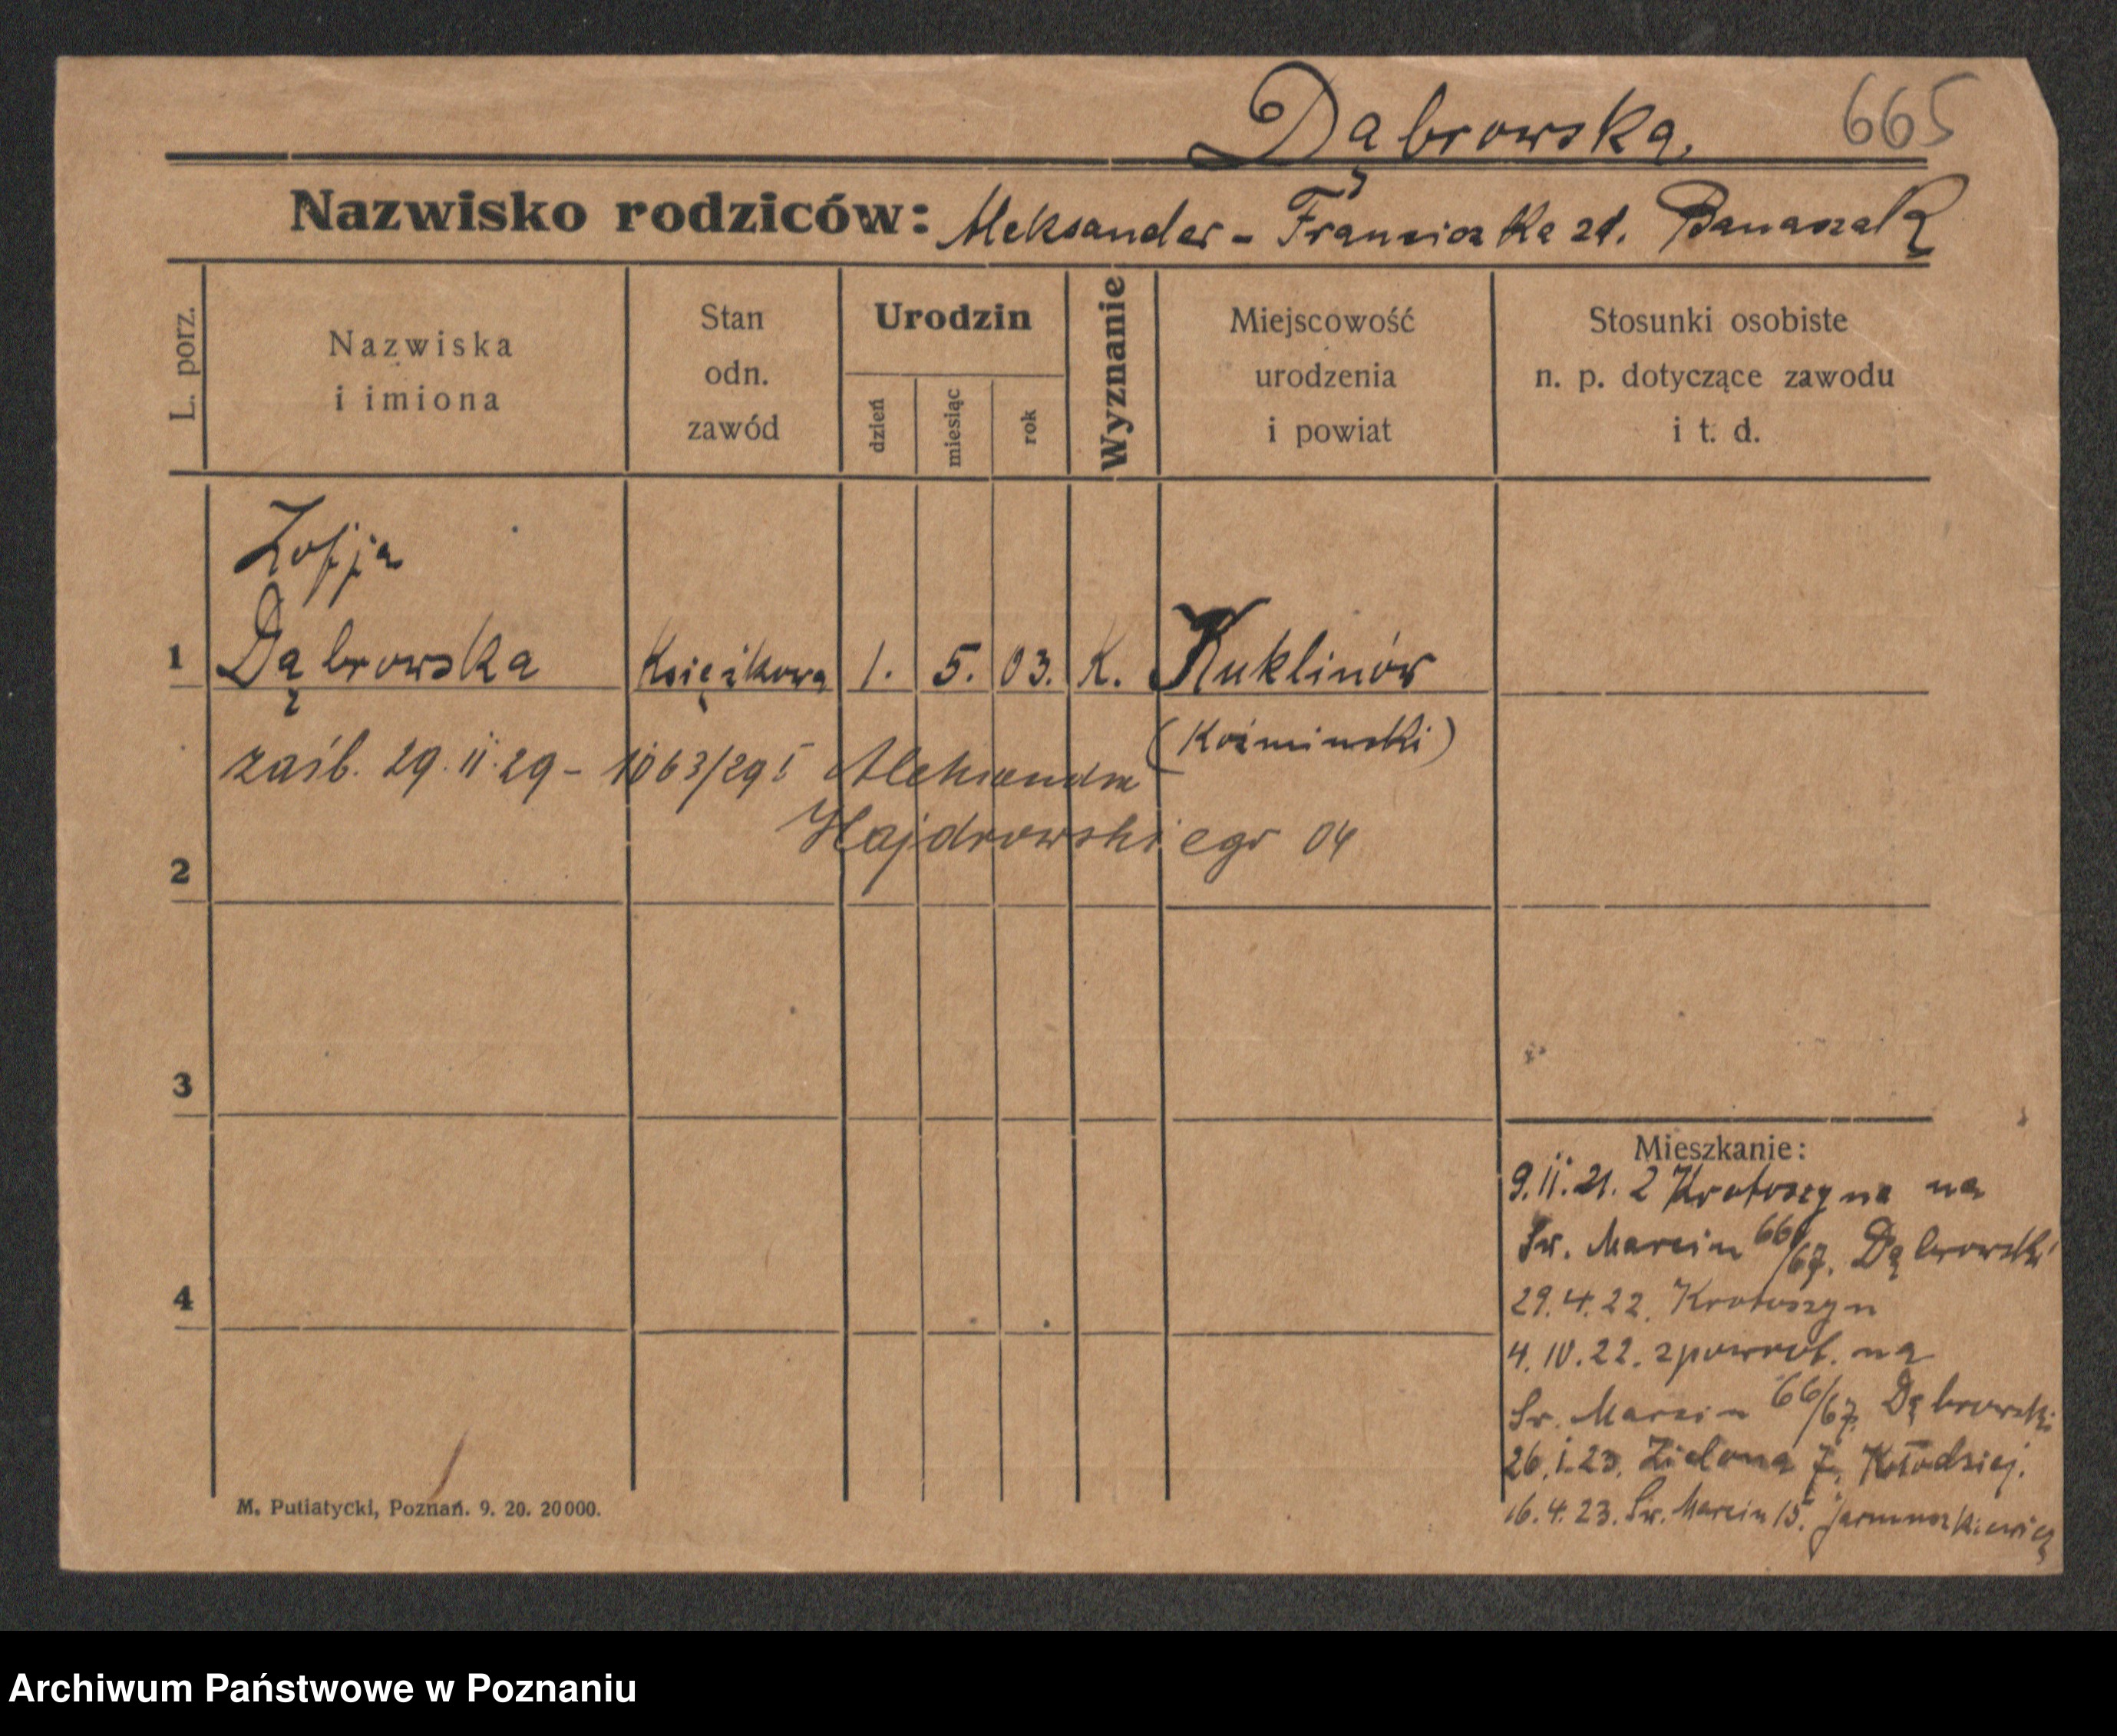 Dąbrowska. 665
Nazwisko rodziców: Aleksander - Franciszka zd. Banaszak
L. porz.
Nazwiska
i imiona
Stan
odn.
zawód
Urodzin
dzień
miesiąc
rok
Wyznanie
Miejscowość
urodzenia
i powiat
Stosunki osobiste
n. p. dotyczące zawodu
i t. d.
Zofja
1 Dąbrowska Księżkowa 1. 5. 03. K. Kuklinów
(Koźminski)
zaśb. 29.11.29 - 1063/29 Aleksandra
Hajdrowskiego 04
2
3
4
Mieszkanie:
9.11.21. z Krotoszyna na
Św. Marcin 66/67. Dąbrowski
29.4.22. Krotoszyn
4.10.22. zpowrot. na
Św. Marcin 66/67 Dąbrowski
26.1.23. Zielona 7, Kołodziej.
16.4.23. Św. Marcin 15. Jarmuszkiewicz
M. Putiatycki, Poznań. 9. 20. 20000.
Archiwum Państwowe w Poznaniu